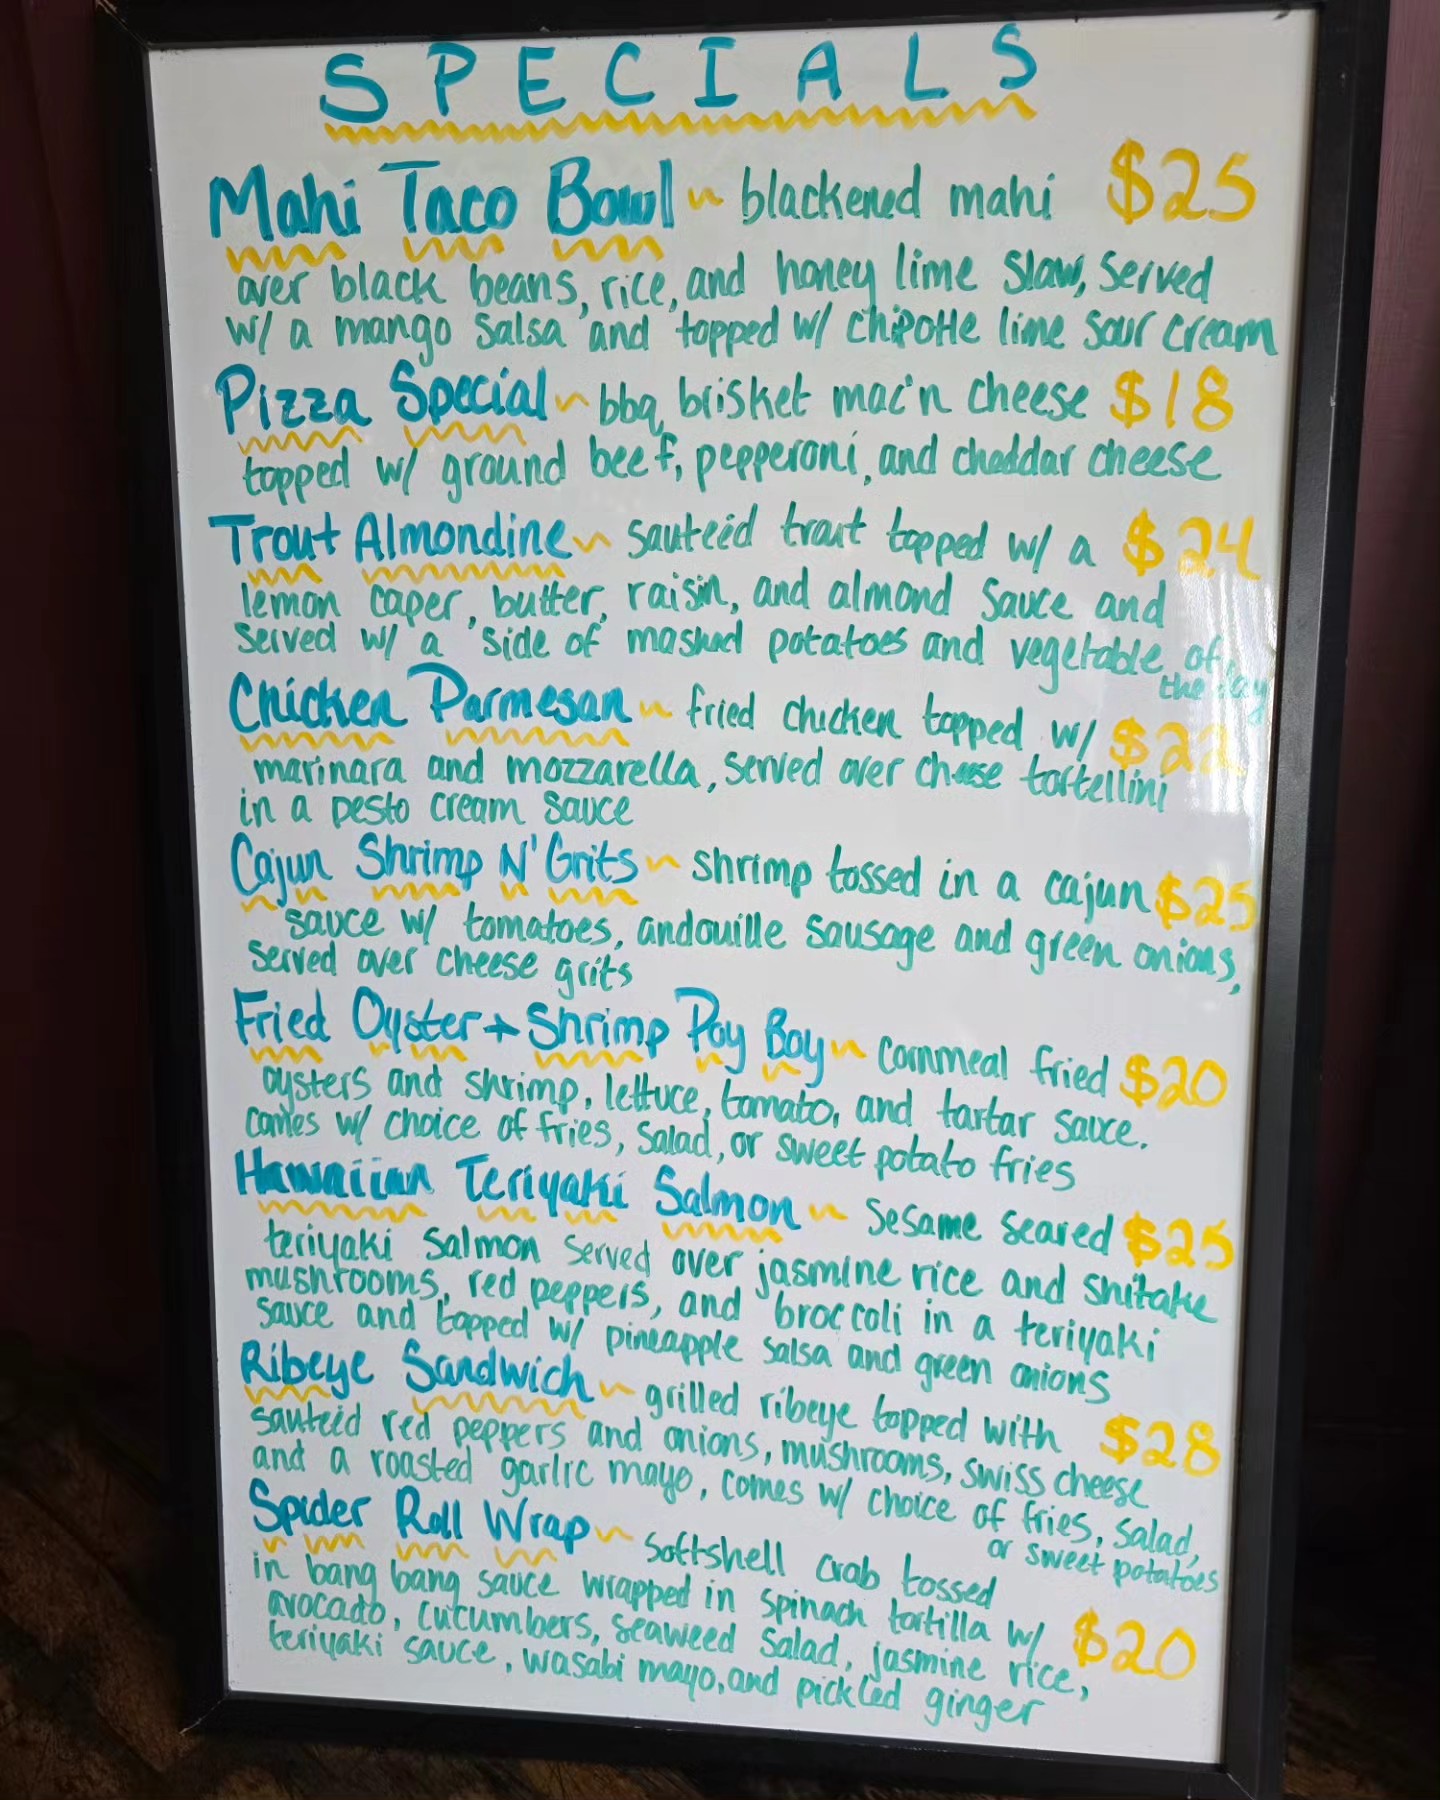 SPECIALS
Mahi Taco Bowl ~ blackened mahi $25
over black beans, rice, and honey lime slaw, served
w/ a mango salsa and topped w/ chipotle lime sour cream
Pizza Special ~ bbq brisket mac'n cheese $18
topped w/ ground beef, pepperoni, and cheddar cheese
Trout Almondine ~ sauteéd trout topped w/ a $24
lemon caper, butter, raisin, and almond sauce and
served w/ a side of mashed potatoes and vegetable of
the day
Chicken Parmesan ~ fried chicken topped w/ $22
marinara and mozzarella, served over cheese tortellini
in a pesto cream sauce
Cajun Shrimp N' Grits ~ shrimp tossed in a cajun $25
sauce w/ tomatoes, andouille sausage and green onions,
served over cheese grits
Fried Oyster + Shrimp Poy Boy ~ cornmeal fried $20
oysters and shrimp, lettuce, tomato, and tartar sauce.
comes w/ choice of fries, salad, or sweet potato fries
Hawaiian Teriyaki Salmon ~ sesame seared $25
teriyaki salmon served over jasmine rice and shitake
mushrooms, red peppers, and broccoli in a teriyaki
sauce and topped w/ pineapple salsa and green onions
Ribeye Sandwich ~ grilled ribeye topped with $28
sauteéd red peppers and onions, mushrooms, swiss cheese
and a roasted garlic mayo, comes w/ choice of fries, salad,
or sweet potatoes
Spider Roll Wrap ~ softshell crab tossed
in bang bang sauce wrapped in spinach tortilla w/ $20
avocado, cucumbers, seaweed salad, jasmine rice,
teriyaki sauce, wasabi mayo, and pickled ginger